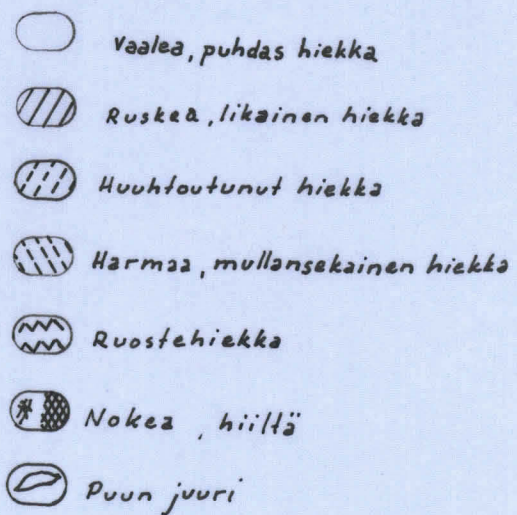 Vaalea, puhdas hiekka
Ruskea, likainen hiekka
Huuhtoutunut hiekka
Harmaa, mullansekainen hiekka
Ruostehiekka
Nokea, hiiltä
Puun juuri